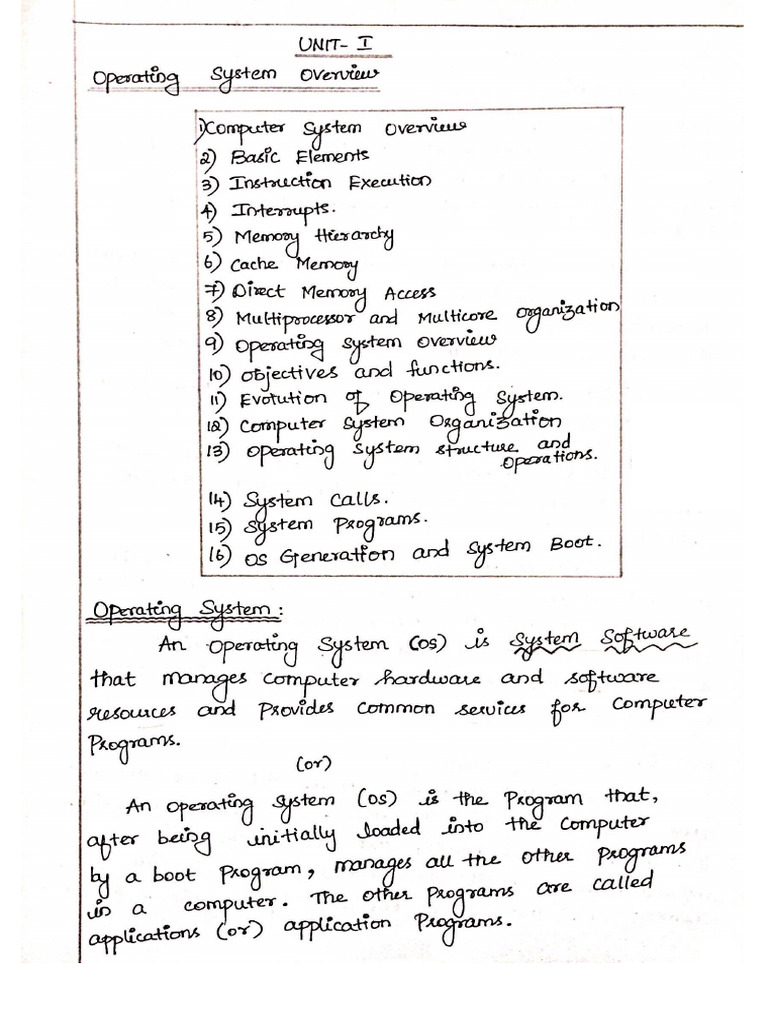 UNIT- I
Operating System Overview
1) Computer System Overview
2) Basic Elements
3) Instruction Execution
4) Interrupts.
5) Memory Hierarchy
6) Cache Memory
7) Direct Memory Access
8) Multiprocessor and Multicore Organization
9) Operating System Overview
10) Objectives and functions.
11) Evolution of Operating System.
12) Computer System Organization
13) Operating System structure and
Operations.
14) System Calls.
15) System Programs.
16) OS Generation and System Boot.
Operating System:
An Operating System (OS) is System Software
that manages computer hardware and software
resources and Provides Common services for Computer
Programs.
(or)
An operating System (OS) is the Program that,
after being initially loaded into the Computer
by a boot Program, manages all the other Programs
in a computer. The other Programs are called
applications (or) application Programs.